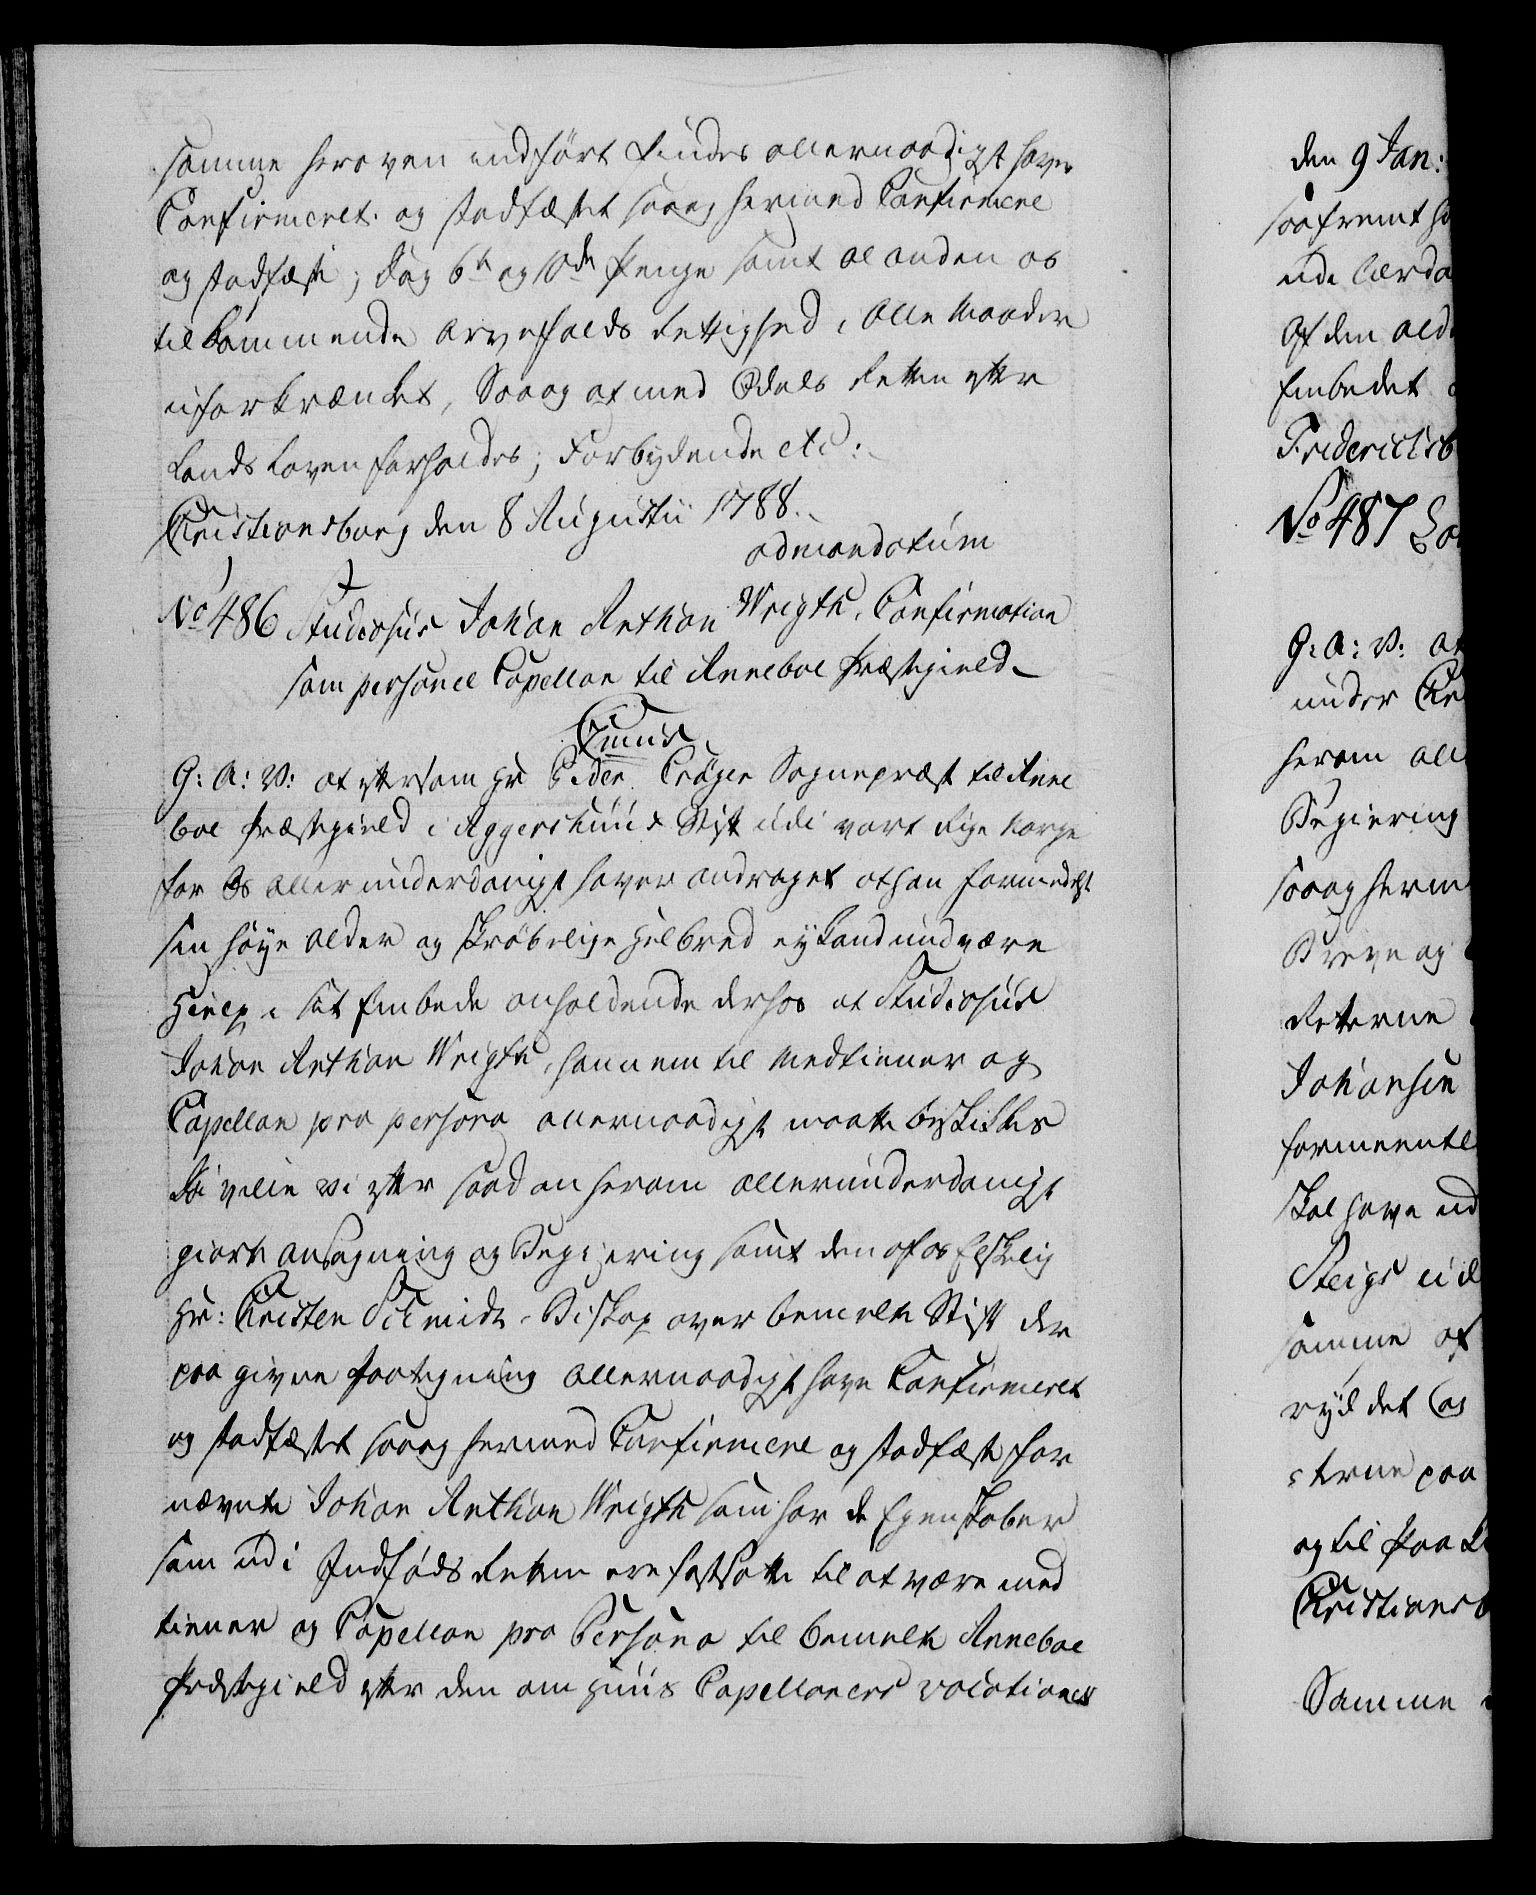 samme heroven indført findes allernaadigst have
Confirmeret og stadfæstet saaog hermed Confirmere
og stadfæste; Dog 6te og 10de Penge samt al anden os
tilkommende Arvefalds Rettighed i Alle Maader
uforkrænket, Saaog at med Odels Retten efter
Lands Loven forholdes; Forbydende etc:
Christiansborg den 8 Augustii 1788.
admandatum
No 486 Studiosus Johan Arthon Wrigth, Confirmation
som personel Capellan til Anneboe Præstegield
Cmus
G: A: V: at eftersom Hr Peder Crøger Sognepræst til Anne
boe Præstegield i Aggershuus Stift udi vort Rige Norge
for Os allerunderdanigst haver andraget at han formedelst
sin høye Alder og skrøbelige Helbred ey kand undvære
Hielp i sit Embede anholdende derhos at Studiosus
Johan Arthon Wrigth, hannem til Medtiener og
Capellan pro persona allernaadigst maatte beskikkes
Da ville vi efter saadan herom allerunderdanigst
giorte Ansøgning og Begiering samt den af os Elskelig
Hr: Christen Schmidt Biskop over bemelte Stift der
paa givne Paategning allernaadigst have Confirmeret
og stadfæstet saaog hermed Confirmere og stadfæste for
nævnte Johan Arthon Wrigth som har de Egenskaber
som udi Indføds Retten ere fastsatte til at være med
tiener og Capellan pro Persona til bemelte Anneboe
Præstegield efter den om Huus Capellaners vocationer
den 9 Jan:
saafremt
udi Lærda
Af den ald
Embedet
Fredericksb
No 487
G: A: V: at
under
herom all
Begiering
saaog herm
Breve og
Retterne
Johansen
formeentl
skal have ud
Steigs
samme af
det
paa
og til Paa
Christiansb
Samme